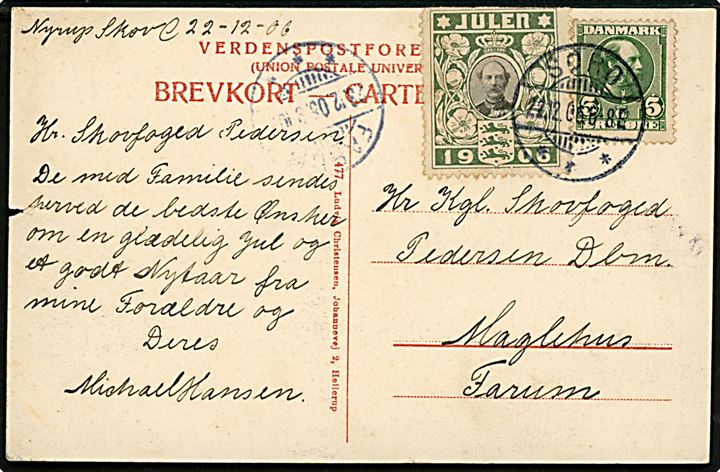 Nyrup Skov 22-12-06
VERDENSPOSTFORE
(UNION POSTALE UNIVER
BREVKORT — CARTE
Hr. Skovfoged Pedersen.
De med Familie sendes
herved de bedste Ønsker
om en glædelig Jul og
et godt Nytaar fra
mine Forældre og
Deres
Michael Hansen.
477. Ludvig Christensen, Johannevej 2, Hellerup
JULEN
1906
DANMARK
5 5
SORØ
22.12.06
Hr Kgl. Skovfoged
Pedersen Dbm.
Maglehus
Farum